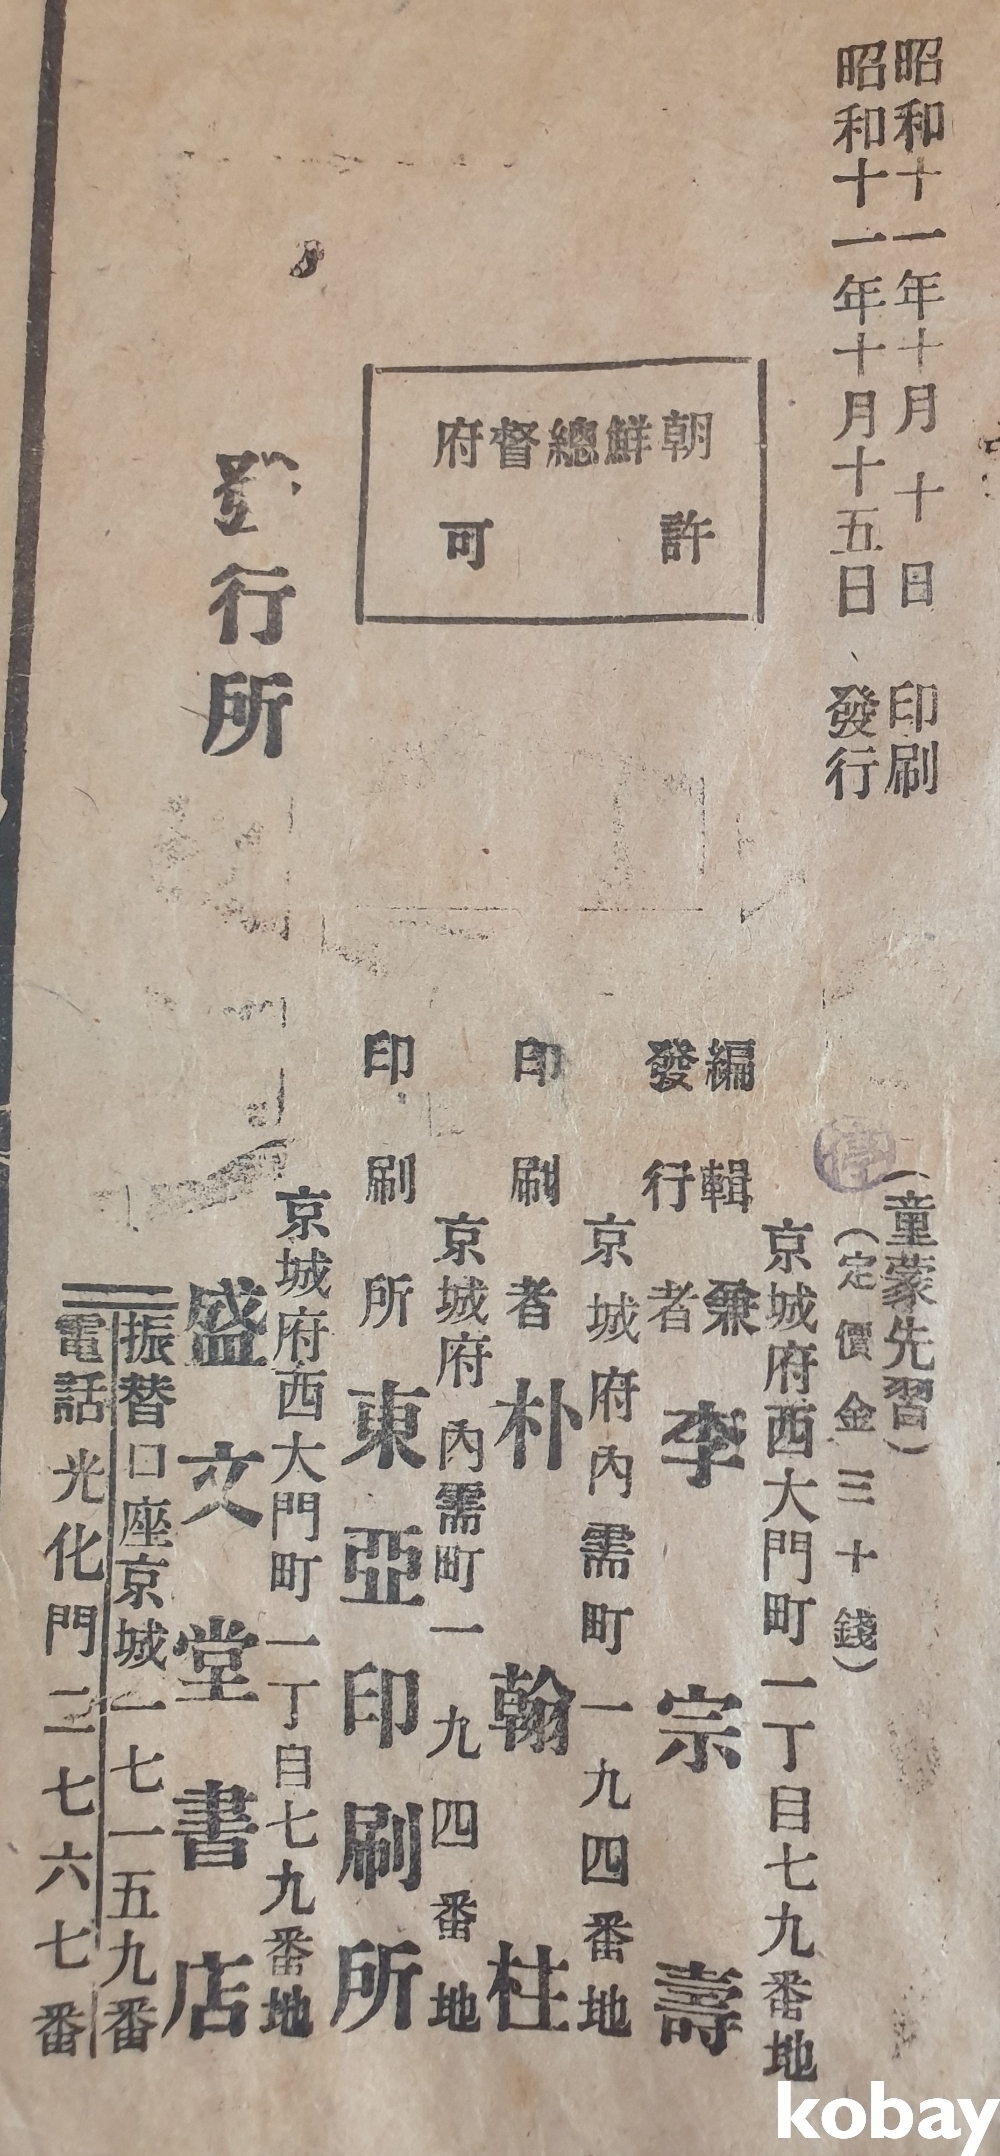 昭和十一年十月十日印刷
昭和十一年十月十五日發行
朝鮮總督府
許可
(童蒙先習)
(定價金三十錢)
京城府西大門町一丁目七九番地
編輯兼
發行者 李宗壽
京城府內需町一九四番地
印刷者 朴翰柱
京城府內需町一九四番地
印刷所 東亞印刷所
京城府西大門町一丁目七九番地
發行所 盛文堂書店
振替口座京城一七一五九番
電話光化門二七六七番
kobay